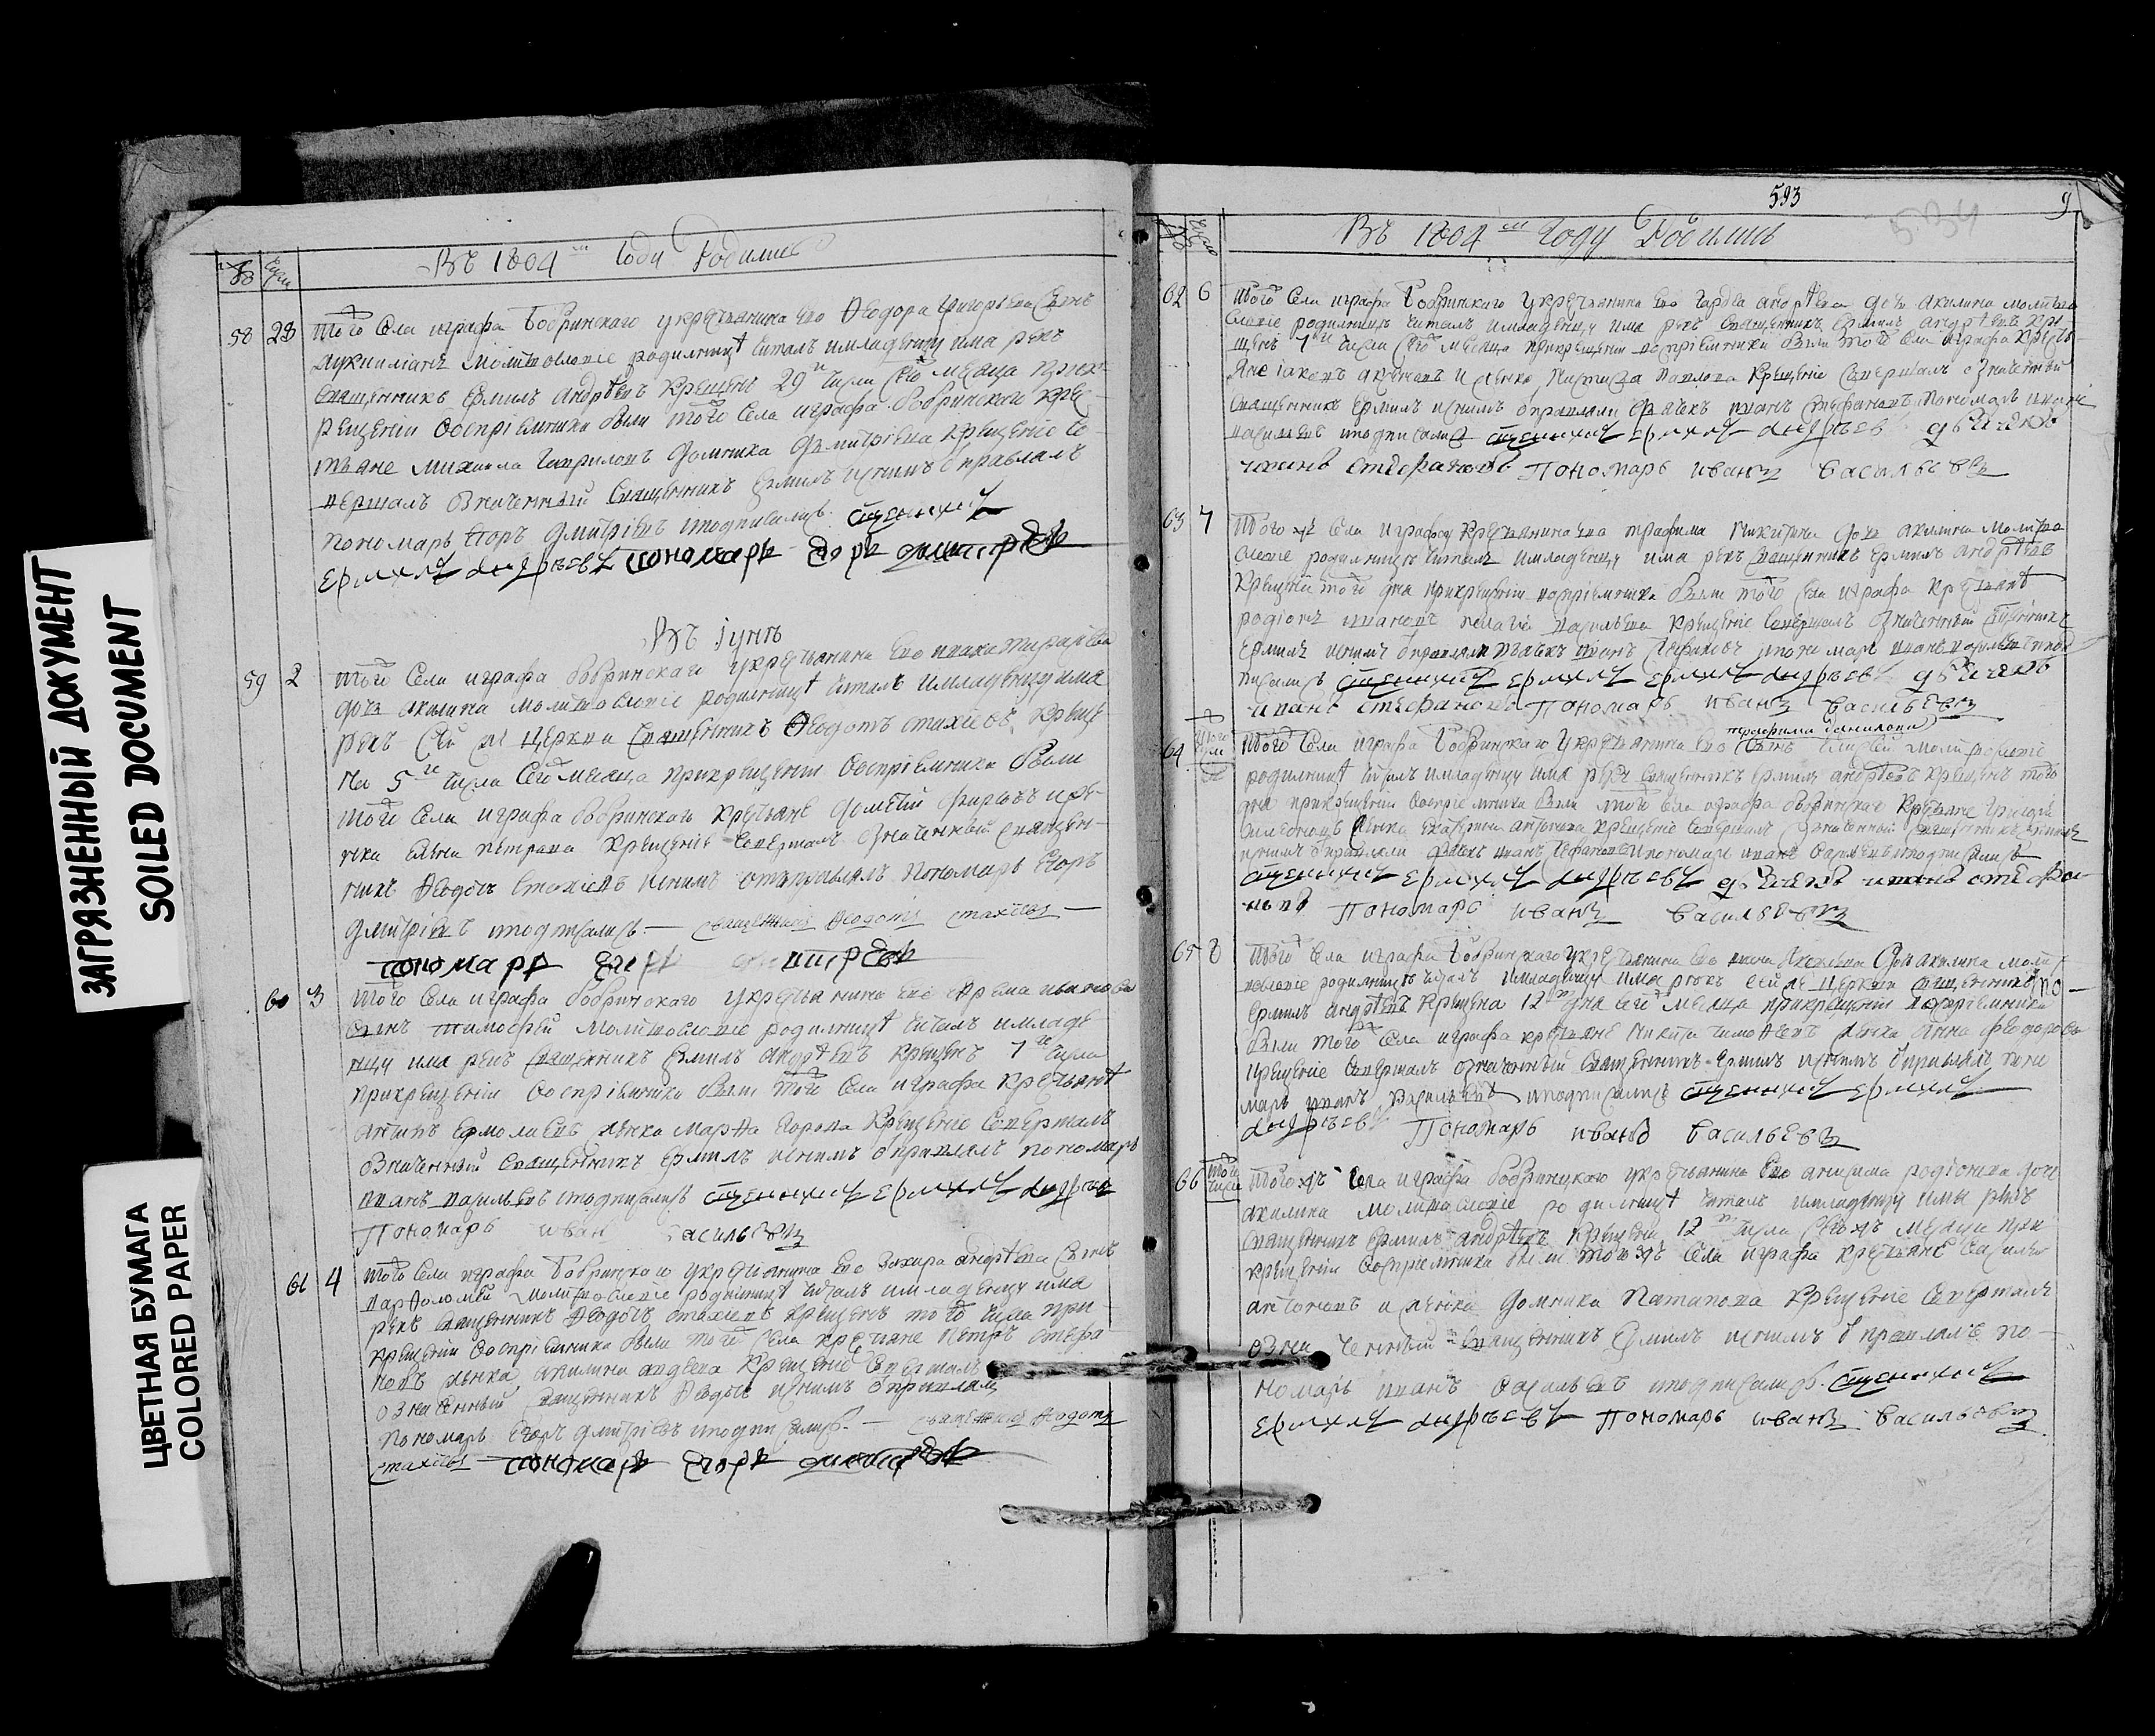 ЗАГРЯЗНЕННЫЙ ДОКУМЕНТ
SOILED DOCUMENT
ЦВЕТНАЯ БУМАГА
COLORED PAPER
Въ 1804 м Году Родились
58 28 Того Села играфа Бобринскаго укрестьянина Его Ѳеодора Григорьева Сынъ
Лукиллианъ молитвословіе родилницѣ Читалъ имладенцу имя рекъ
Священникъ Ермилъ Андрѣевъ Крещенъ 29 числа Сего месеца прикре
щеніи Восприемники были того Села играфа Бобринского Крес
тьяне Михаила Гавриловъ Домника Дмитріева Крещеніе Со
вершалъ Означенный Священникъ Ермилъ иснимъ справлялъ
пономарь Егоръ Дмитріевъ иподписались священникъ
Ермилъ Андрѣевъ пономарь Егоръ Дмитрѣевъ
Въ Іунѣ
59 2 Того Села играфа бобринскаго укрестьянина Его
дочь акилина молитвословіе родилницѣ Читалъ имладенцу имя
рекъ Сей же церкви Священникъ Ѳеодотъ Стахіевъ Креще
на 5 числа Сего месяца прикрещеніи Восприемники были
того Села играфа бобринскаго Крестьяне дометій
Елена Петрова Крещеніе Совершалъ Означенный Священ
никъ Ѳеодотъ Стахіевъ иснимъ отправлялъ Пономарь Егоръ
Дмитріевъ иподписались — священникъ Ѳеодотъ Стахіевъ —
пономарь Егоръ Дмитрѣевъ
60 3 Того Села играфа бобринского укрестьянина Его Ефрема иванова
Сынъ тимофей молитвословіе родилницѣ Читалъ имладе
нцу имя рекъ Священникъ Ермилъ Андрѣевъ Крещенъ 7 числа
прикрещеніи Восприемники были того Села играфа Крестьянѣ
антипъ Ермолаевъ Марѳа Егорова Крещеніе Совершалъ
Означенный Священникъ Ермилъ иснимъ справлялъ пономарь
иванъ васильевъ иподписались священникъ Ермилъ Андрѣевъ
Пономарь иван васильевъ
61 4 Того Села играфа Бобринскаго укрестьянина Его Захара андрѣева Сынъ
варѳоломей молитвословіе родилницѣ Читалъ имладенцу имя
рекъ Священникъ Ѳеодотъ Стахіевъ Крещенъ того числа при
крещеніи Восприемники были того Села крестьяне Петръ Стефа
новъ акилина андреева Крещеніе Совершалъ
означенный Священникъ Ѳеодотъ иснимъ справлялъ
Пономарь Егоръ дмитріевъ иподписались — священникъ Ѳеодотъ
Стахіевъ пономарь Егоръ Дмитрѣевъ
593
534
9
Въ 1804 м Году Родились
62 6 Того Села играфа Бобринскаго Укрестьянина Его Гордея андрѣева дочь акилина молитво
словіе родилницѣ Читалъ имладенцу имя рекъ Священникъ Ермилъ Андрѣевъ Кре
щенъ 7 числа Сего месяца прикрещеніи воспріемники были того Села играфа Кресть
яне павлова Крещеніе Совершалъ означенный
Священникъ Ермилъ иснимъ справляли дьячекъ иванъ Стефановъ Пономарь иванъ
васильевъ иподписались священникъ Ермилъ Андрѣевъ дьячекъ
иванъ Стефановъ Пономарь иванъ васильевъ
63 7 Того же Села играфа Крестьянина Его трафима Никитина дочь акилина Молитво
словіе родилницѣ Читалъ имладенцу имя рекъ Священникъ Ермилъ андрѣевъ
Крещена того дня прикрещеніи воспріемники были того Села играфа Крестьянѣ
родіонъ ивановъ васильева Крещеніе Совершалъ Означенный Священникъ
Ермилъ иснимъ справляли дьячекъ иванъ Стефановъ ипономарь иванъ васильевъ иподъ
писались священникъ Ермилъ Ермилъ Андрѣевъ дьячекъ
иванъ Стефановъ Пономарь иванъ васильевъ
64 Того числа Того Села играфа Бобринскаго Укрестьянина Его трафима данилова Сынъ Елисей молитвословіе
родилницѣ Читалъ имладенцу имя рекъ Священникъ Ермилъ андрѣевъ Крещенъ того
дня прикрещеніи Восприемники были того Села играфа бобринскаго Крестьяне Григорій
Симеоновъ Екатерина антонова Крещеніе Совершалъ Означенный Священникъ Ермилъ
иснимъ справляли дьячекъ иванъ Стефановъ ипономарь иванъ васильевъ иподписались
священникъ Ермилъ Андрѣевъ дьячекъ иванъ Стефа
новъ Пономарь иванъ васильевъ
65 8 Того Села играфа Бобринскаго укрестьянина Его дочь акилина моли
твословіе родилницѣ Читалъ имладенцу имя рекъ Сей же церкви Священникъ
Ермилъ Андрѣевъ Крещена 12 дня Сего месяца прикрещеніи воспріемники
были того Села играфа крестьяне Никита тимоѳеевъ Анна Федорова
крещеніе Совершалъ означенный Священникъ Ермилъ иснимъ справлялъ поно
марь иванъ васильевъ иподписались священникъ Ермилъ
Андрѣевъ Пономарь иванъ васильевъ
66 того числа Того жъ Села играфа бобринскаго укрестьянина Его анисима родіонова дочь
акилина молитвословіе родилницѣ Читалъ имладенцу имя рекъ
Священникъ Ермилъ андрѣевъ Крещена 12 числа Сего жъ месяца при
крещеніи Восприемники были того жъ Села играфа крестьяне Василей
антоновъ Домника Патапова Крещеніе Совершалъ
означенный Священникъ Ермилъ иснимъ справлялъ по
номарь иванъ Васильевъ иподписались священникъ
Ермилъ Андрѣевъ Пономарь иванъ васильевъ